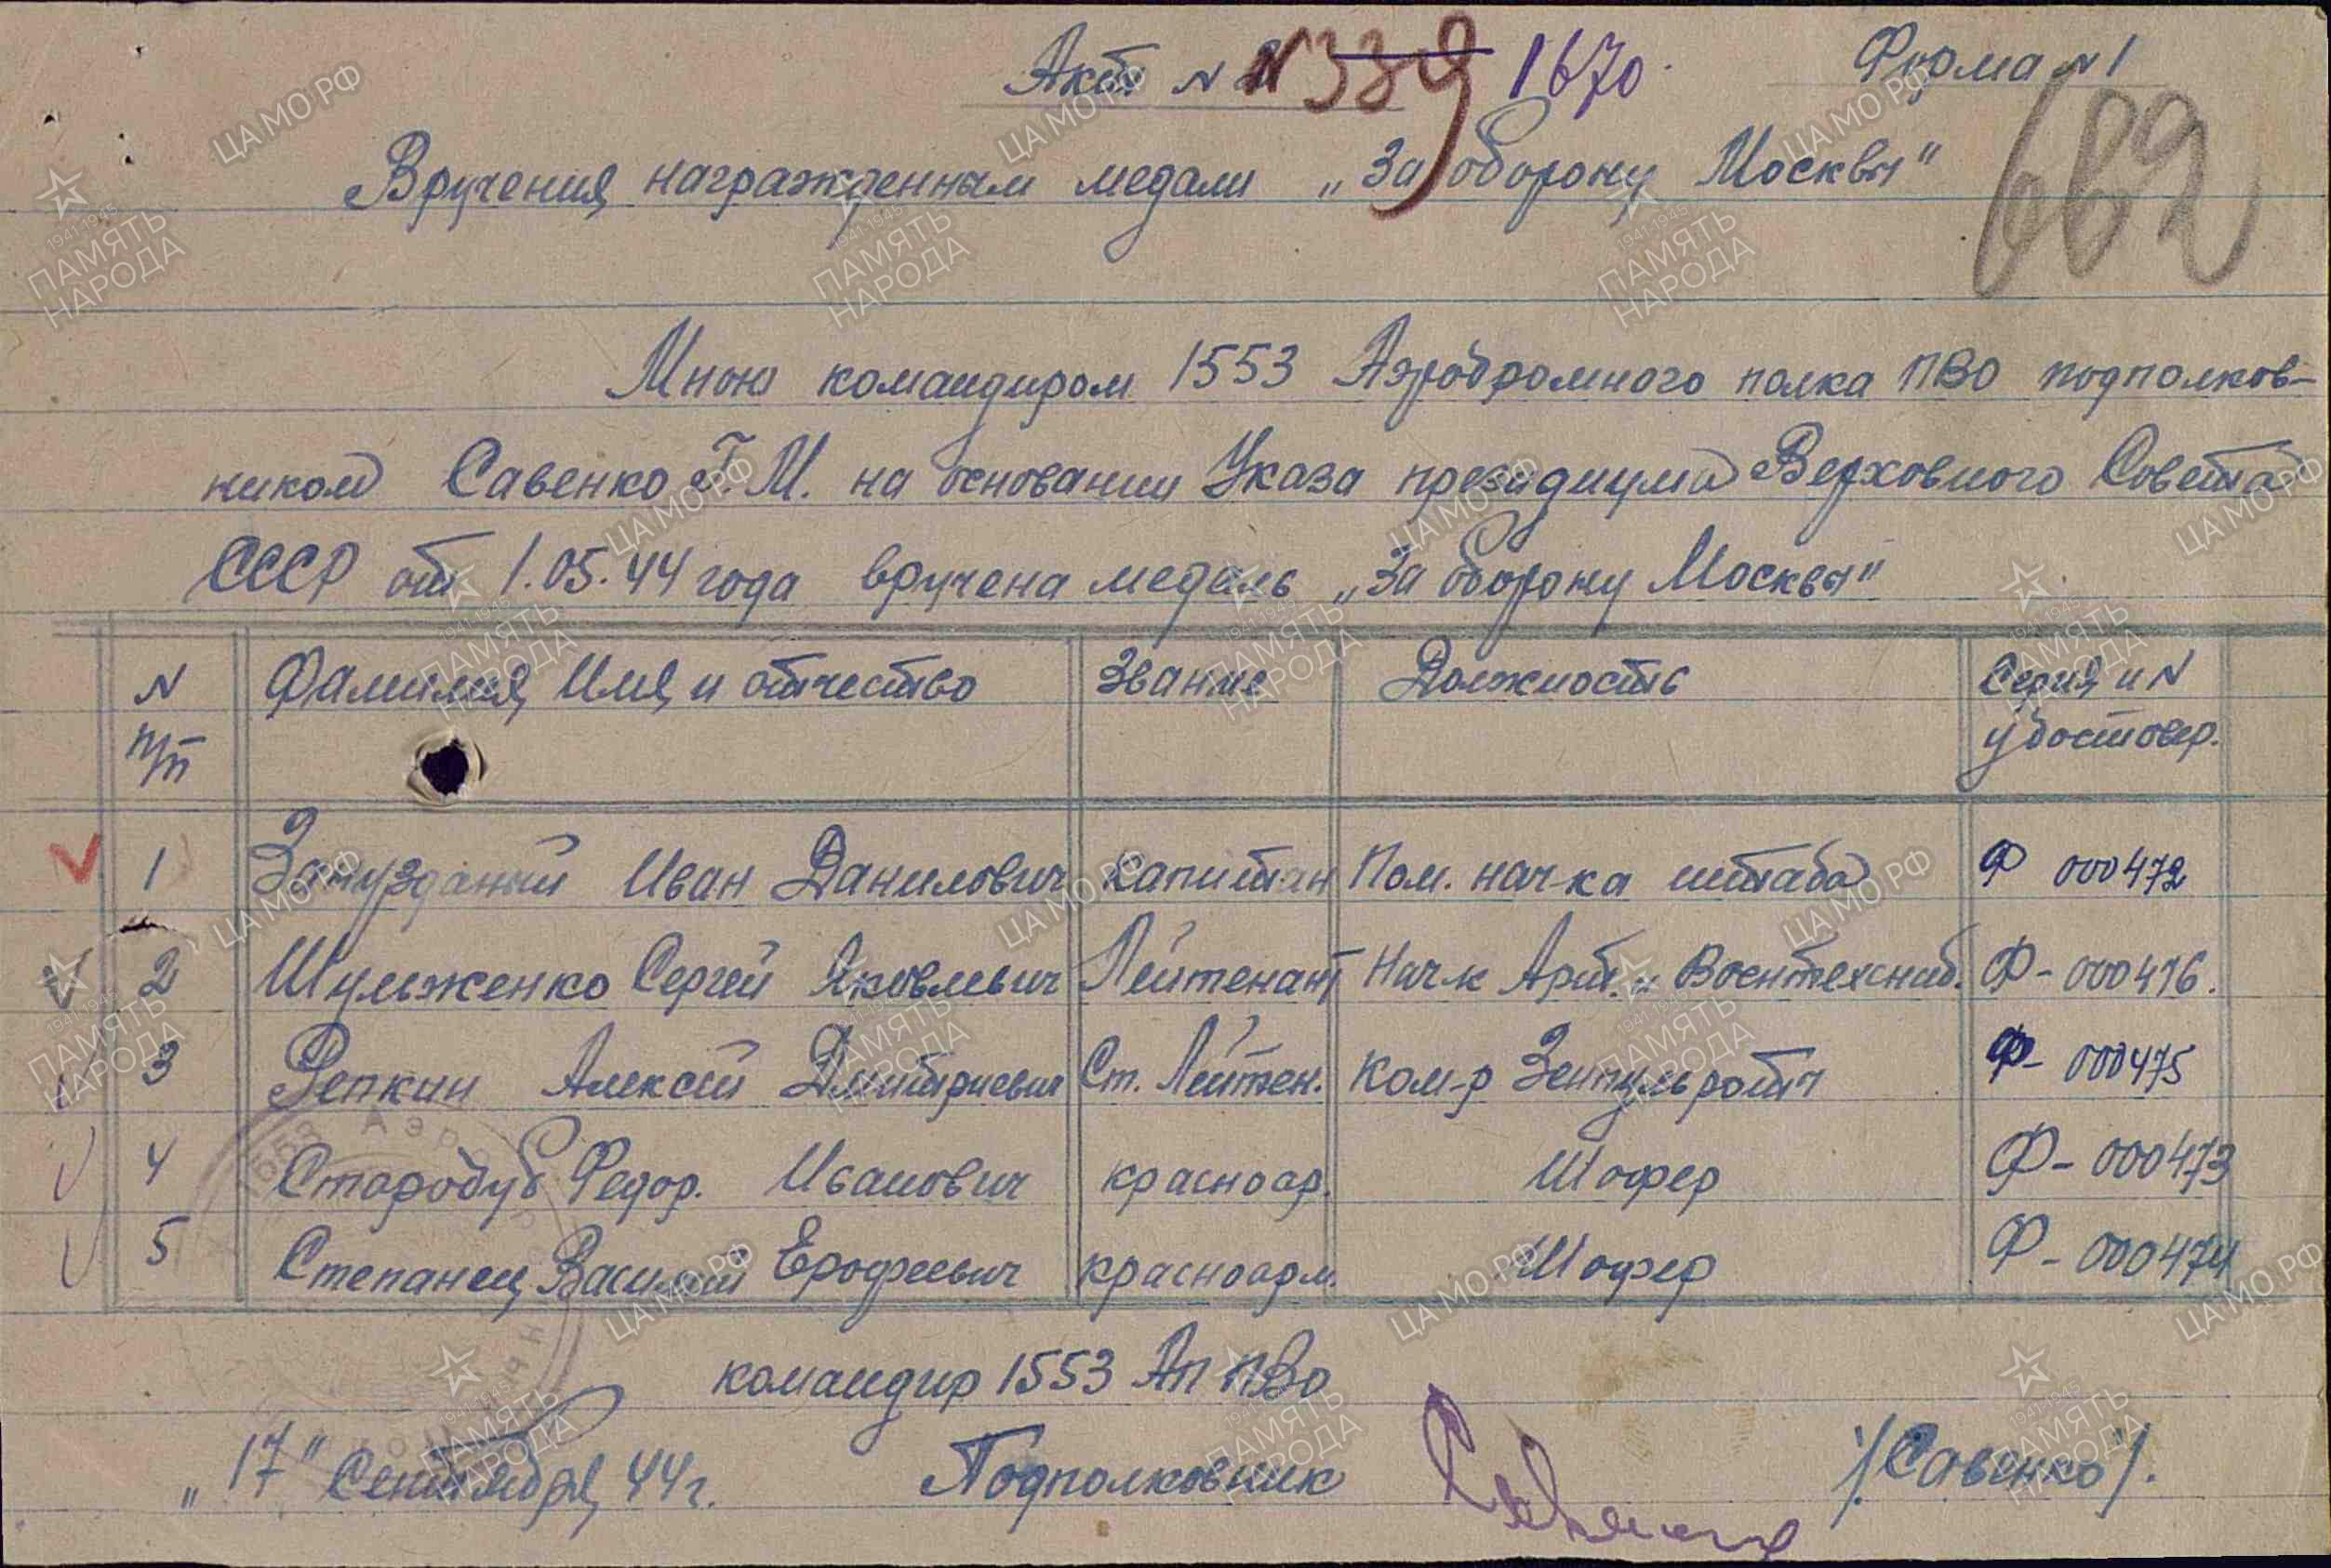 Акт N 339 1670. Форма N 1
682
Вручения награжденным медали „За оборону Москвы"
Мною командиром 1553 Аэродромного полка ПВО подполков-
ником Савенко Г.М. на основании Указа президиума Верховного Совета
СССР от 1.05.44 года вручена медаль „За оборону Москвы"
N п/п Фамилия, Имя, и отчество Звание Должность Серия и N удостовер.
1 Занузданый Иван Данилович Капитан Пом. нач-ка штаба Ф 000472
2 Шульженко Сергей Яковлевич Лейтенант Нач-к Арт. и Воентехснаб. Ф-000476.
3 Репкин Алексей Дмитриевич Ст. Лейтен. Ком-р Зенпульроты Ф-000475
4 Стародуб Федор. Иванович красноар. Шофер Ф-000473
5 Степанец Василий Ерофеевич красноарм. Шофер Ф-000474
командир 1553 АП ПВО
„17" Сентября 44г. Подполковник /Савенко/.
ЦАМО РФ
1941-1945
ПАМЯТЬ
НАРОДА